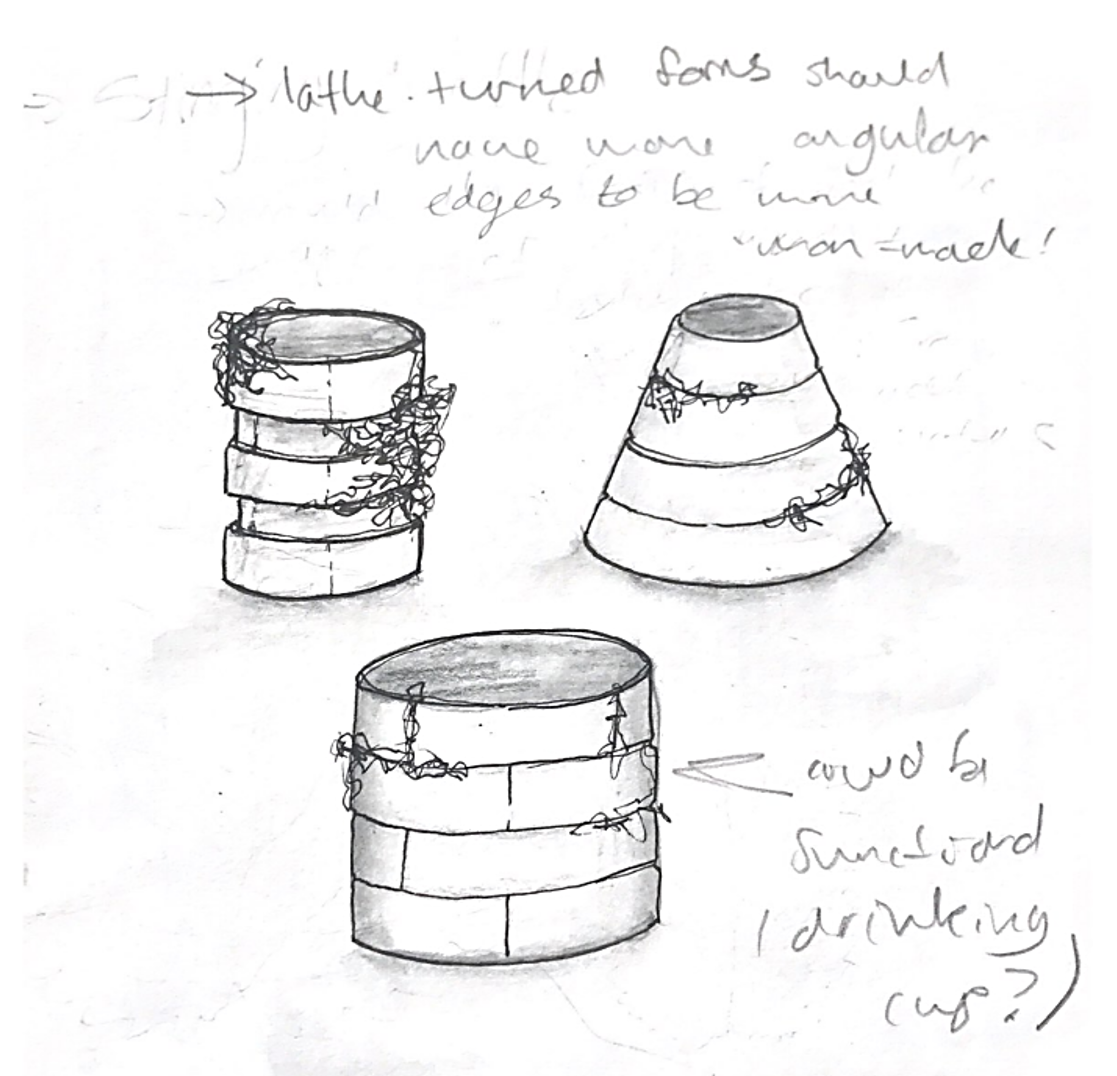 → lathe turned forms should
have more angular
edges to be more
man-made!
← could be
functional
(drinking
cup?)